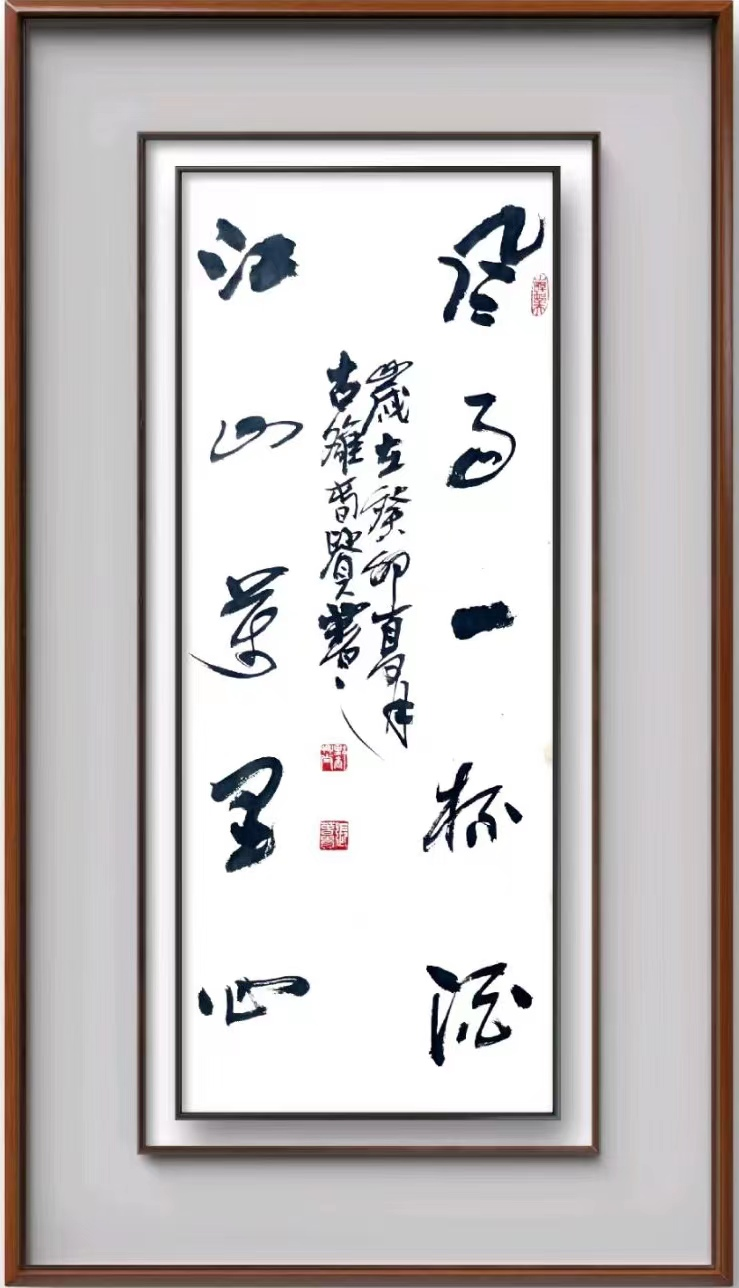 風雨一杯酒
江山萬里心
歲在癸卯夏月
古雒賢書